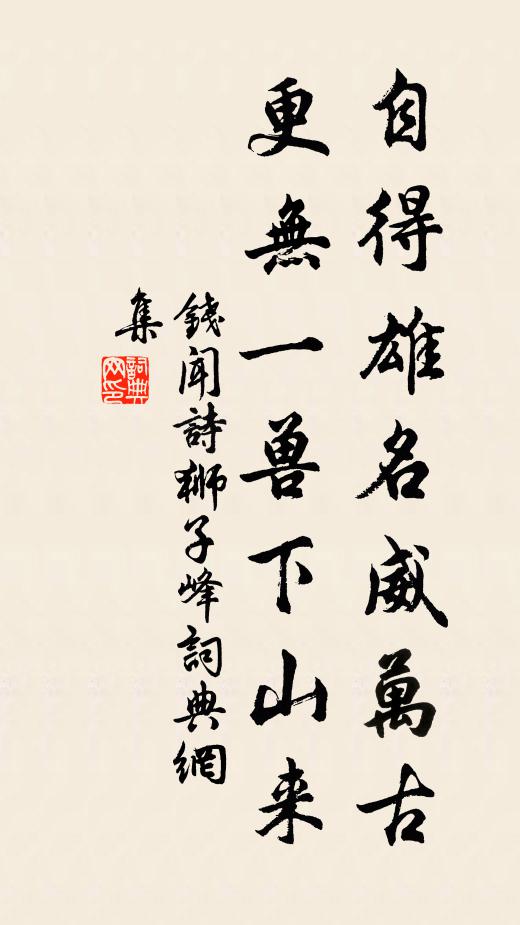 自得雄名威萬古
更無一兽下山来
錢聞詩獅子峰詞典網
集
詞典
网印